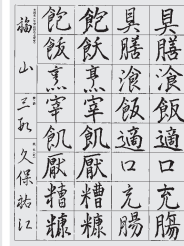 具膳湌飯適口充腸
具膳湌飯適口充腸
飽飫烹宰飢厭糟糠
飽飫烹宰飢厭糟糠
福山 三 久保祐江